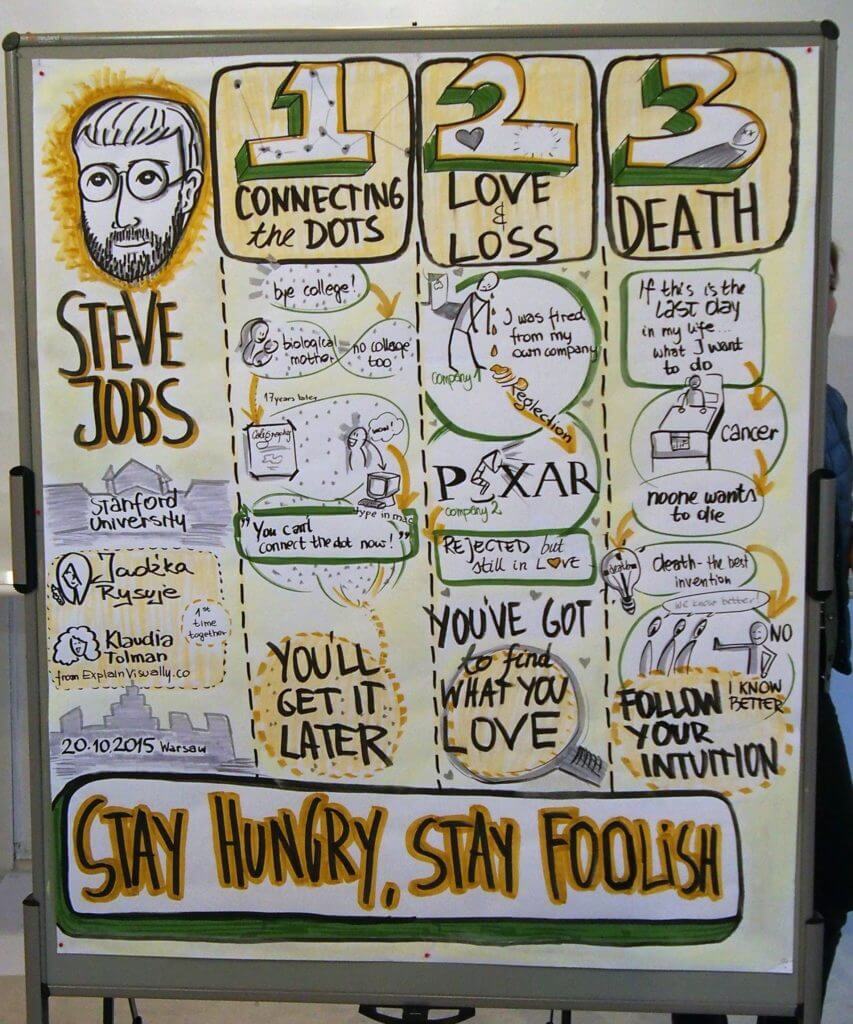 STEVE
JOBS
Stanford
University
Jadźka
Rysuje
1st
time
together
Klaudia
Tolman
from ExplainVisually.co
20.10.2015 Warsaw
1
CONNECTING
the DOTS
bye college!
biological
mother
no college
too
17 years later
Caligraphy
WOW!
type in mac
"You can't
connect the dot now!"
YOU'LL
GET IT
LATER
2
LOVE
&
LOSS
I was fired
from my
own company
company 1
Reglection
PIXAR
company 2
REJECTED but
still in LOVE
YOU'VE GOT
to find
WHAT YOU
LOVE
3
DEATH
If this is the
LAST DAY
in my life...
what I want
to do
Cancer
noone wants
to die
death
death - the best
invention
we know better!
NO
I KNOW
BETTER
FOLLOW
YOUR
INTUITION
STAY HUNGRY, STAY FOOLISH